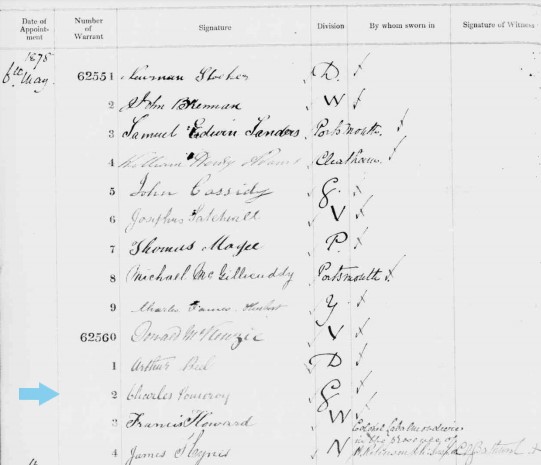 Date of Appoint-ment Number of Warrant Signature Division By whom sworn in Signature of Witness
1875
6th May 62551 Newman Stocker D.
2 John Brennan W
3 Samuel Edwin Sanders Portsmouth
4 William Henry Chatham
5 John Cassidy G.
6 Josephus Satchwell V
7 Thomas Magee P.
8 Michael McGillicuddy Portsmouth
9 Charles James Y
62560 Donald McKenzie V
1 Arthur Peel D
2 Charles Pomeroy G
3 Francis Howard W Colonel
4 James Hynes N